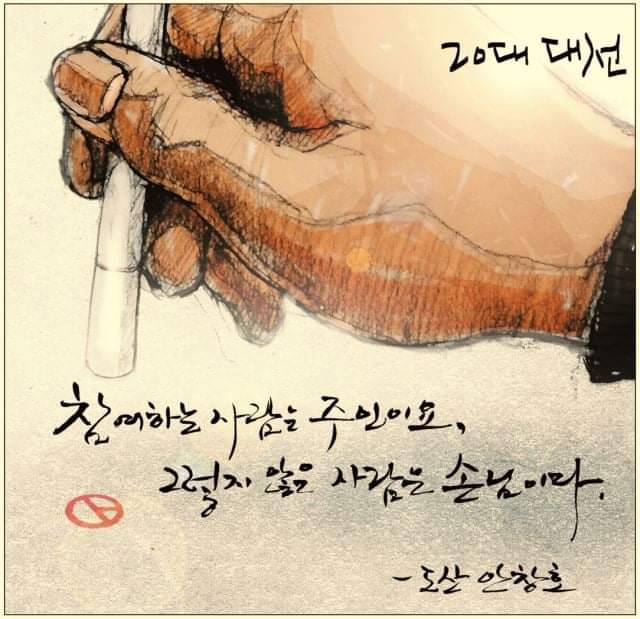 20대 대선
참여하는 사람은 주인이요,
그렇지 않은 사람은 손님이다.
- 도산 안창호